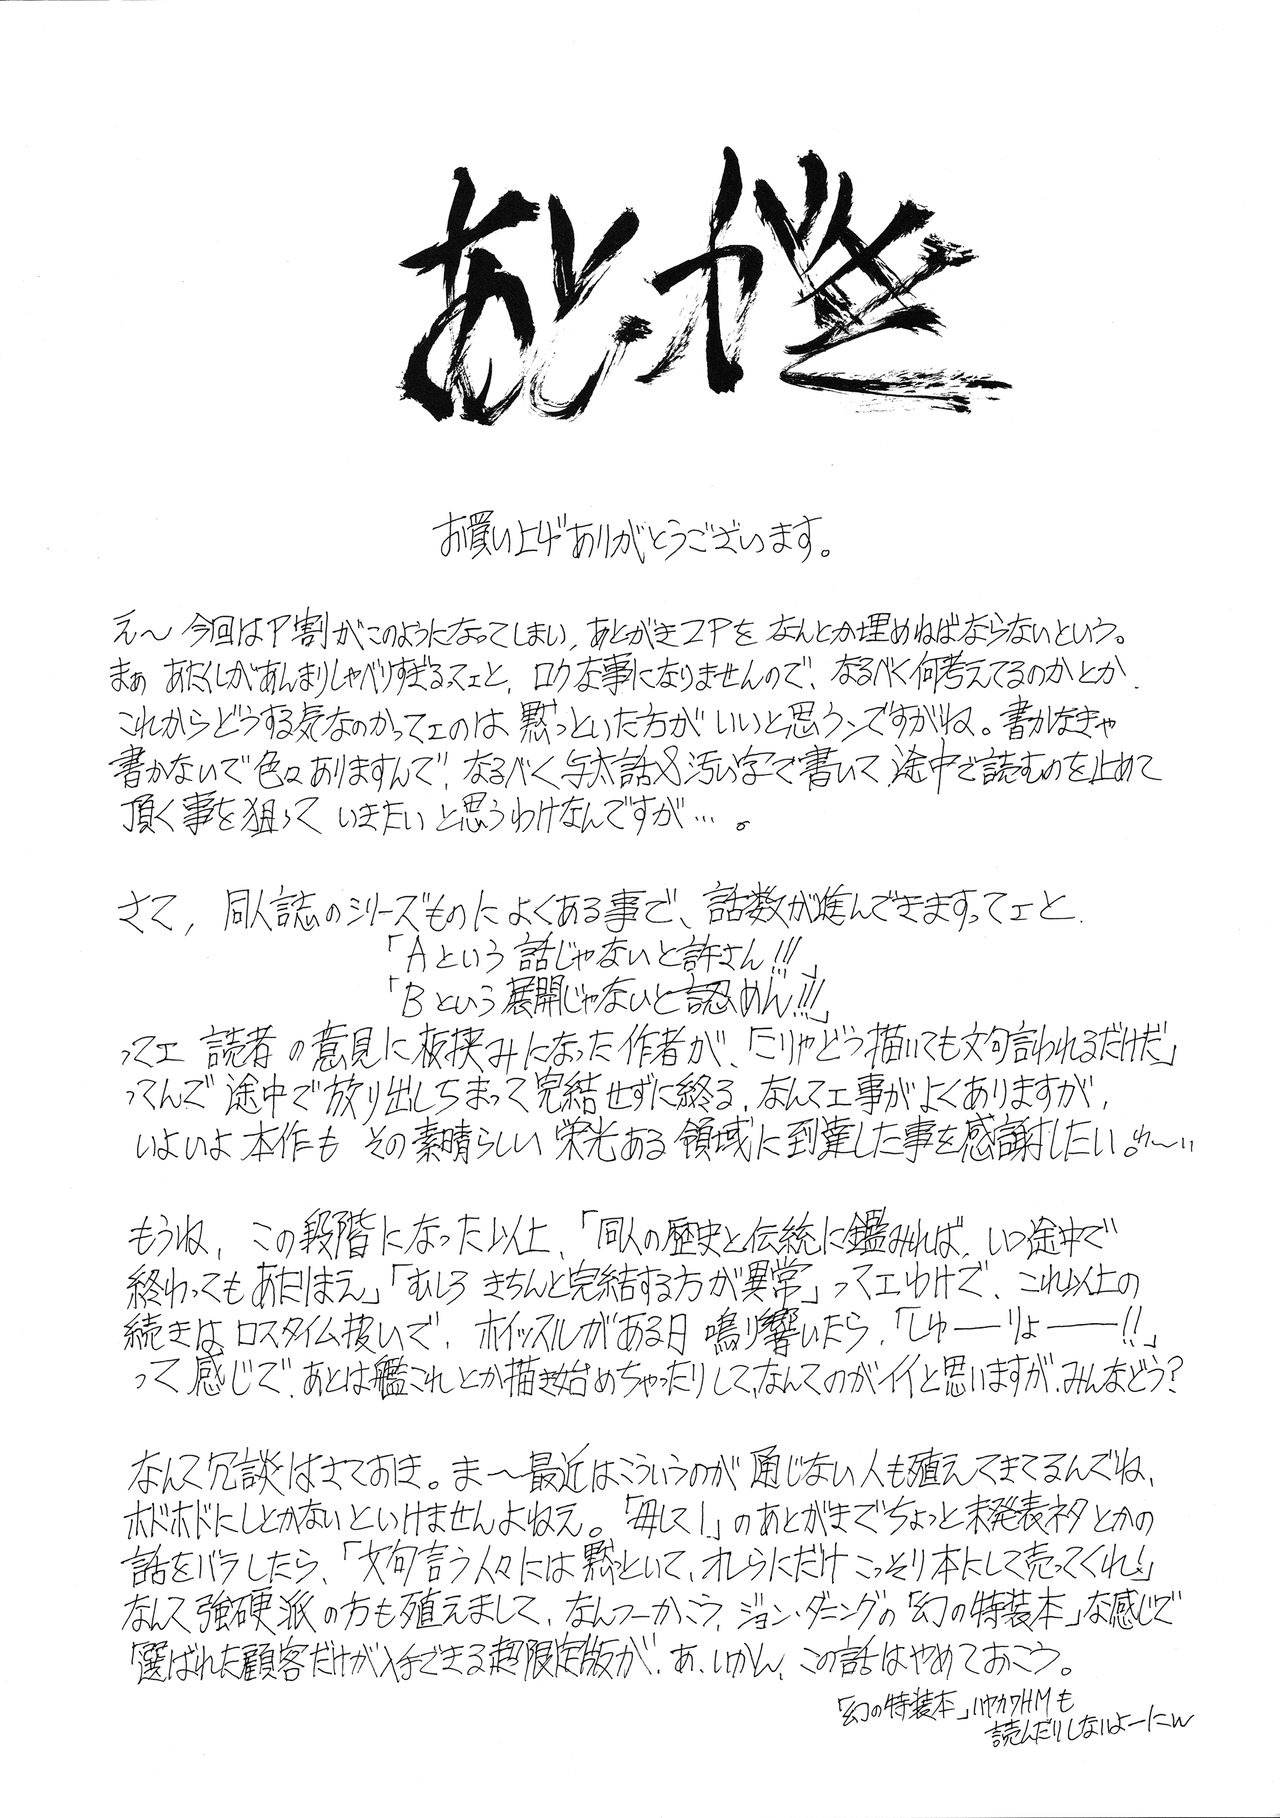 あとがき
お買い上げありがとうございます。
え～今回はP割がこのようになってしまい、あとがき2Pをなんとか埋めねばならないという。
まぁあたくしがあんまりしゃべりすぎるってェと、ロクな事になりませんので、なるべく何考えてるのかとか
これからどうする気なのかってェのは黙っといた方がいいと思うンですがね。書かなきゃ
書かないで色々ありますんで、なるべく与太話&汚い字で書いて途中で読むのを止めて
頂く事を狙っていきたいと思うわけなんですが…。
さて、同人誌のシリーズものによくある事で、話数が進んできますってェと、
「Aという話じゃないと許さん!!!」
「Bという展開じゃないと認めん!!!」
ってェ読者の意見に板挟みになった作者が、「こりゃどう描いても文句言われるだけだ」
ってんで途中で放り出しちまって完結せずに終る、なんてェ事がよくありますが、
いよいよ本作もその素晴らしい栄光ある領域に到達した事を感謝したい。わ～い
もうね、この段階になった以上、「同人の歴史と伝統に鑑みれば、いつ途中で
終わってもあたりまえ」「むしろきちんと完結する方が異常」ってェわけで、これ以上の
続きはロスタイム扱いで、ホイッスルがある日鳴り響いたら、「しゅーりょー!!」
って感じで、あとは艦これとか描き始めちゃったりして、なんてのがイイと思いますが、みんなどう?
なんて冗談はさておき。ま～最近はこういうのが通じない人も殖えてきてるんでね、
ホドホドにしとかないといけませんよねえ。「毎して!」のあとがまでちょっと未発表ネタとかの
話をバラしたら、「文句言う人々には黙っといて、オレらにだけこっそり本にして売ってくれ!」
なんて強硬派の方も殖えまして、なんつーかこう、ジョン・ダニングの「幻の特装本」な感じで
「選ばれた顧客だけが入手できる超限定版が、あ、いかん、この話はやめておこう。
「幻の特装本」ハヤカワHMも
読んだりしないよーにw